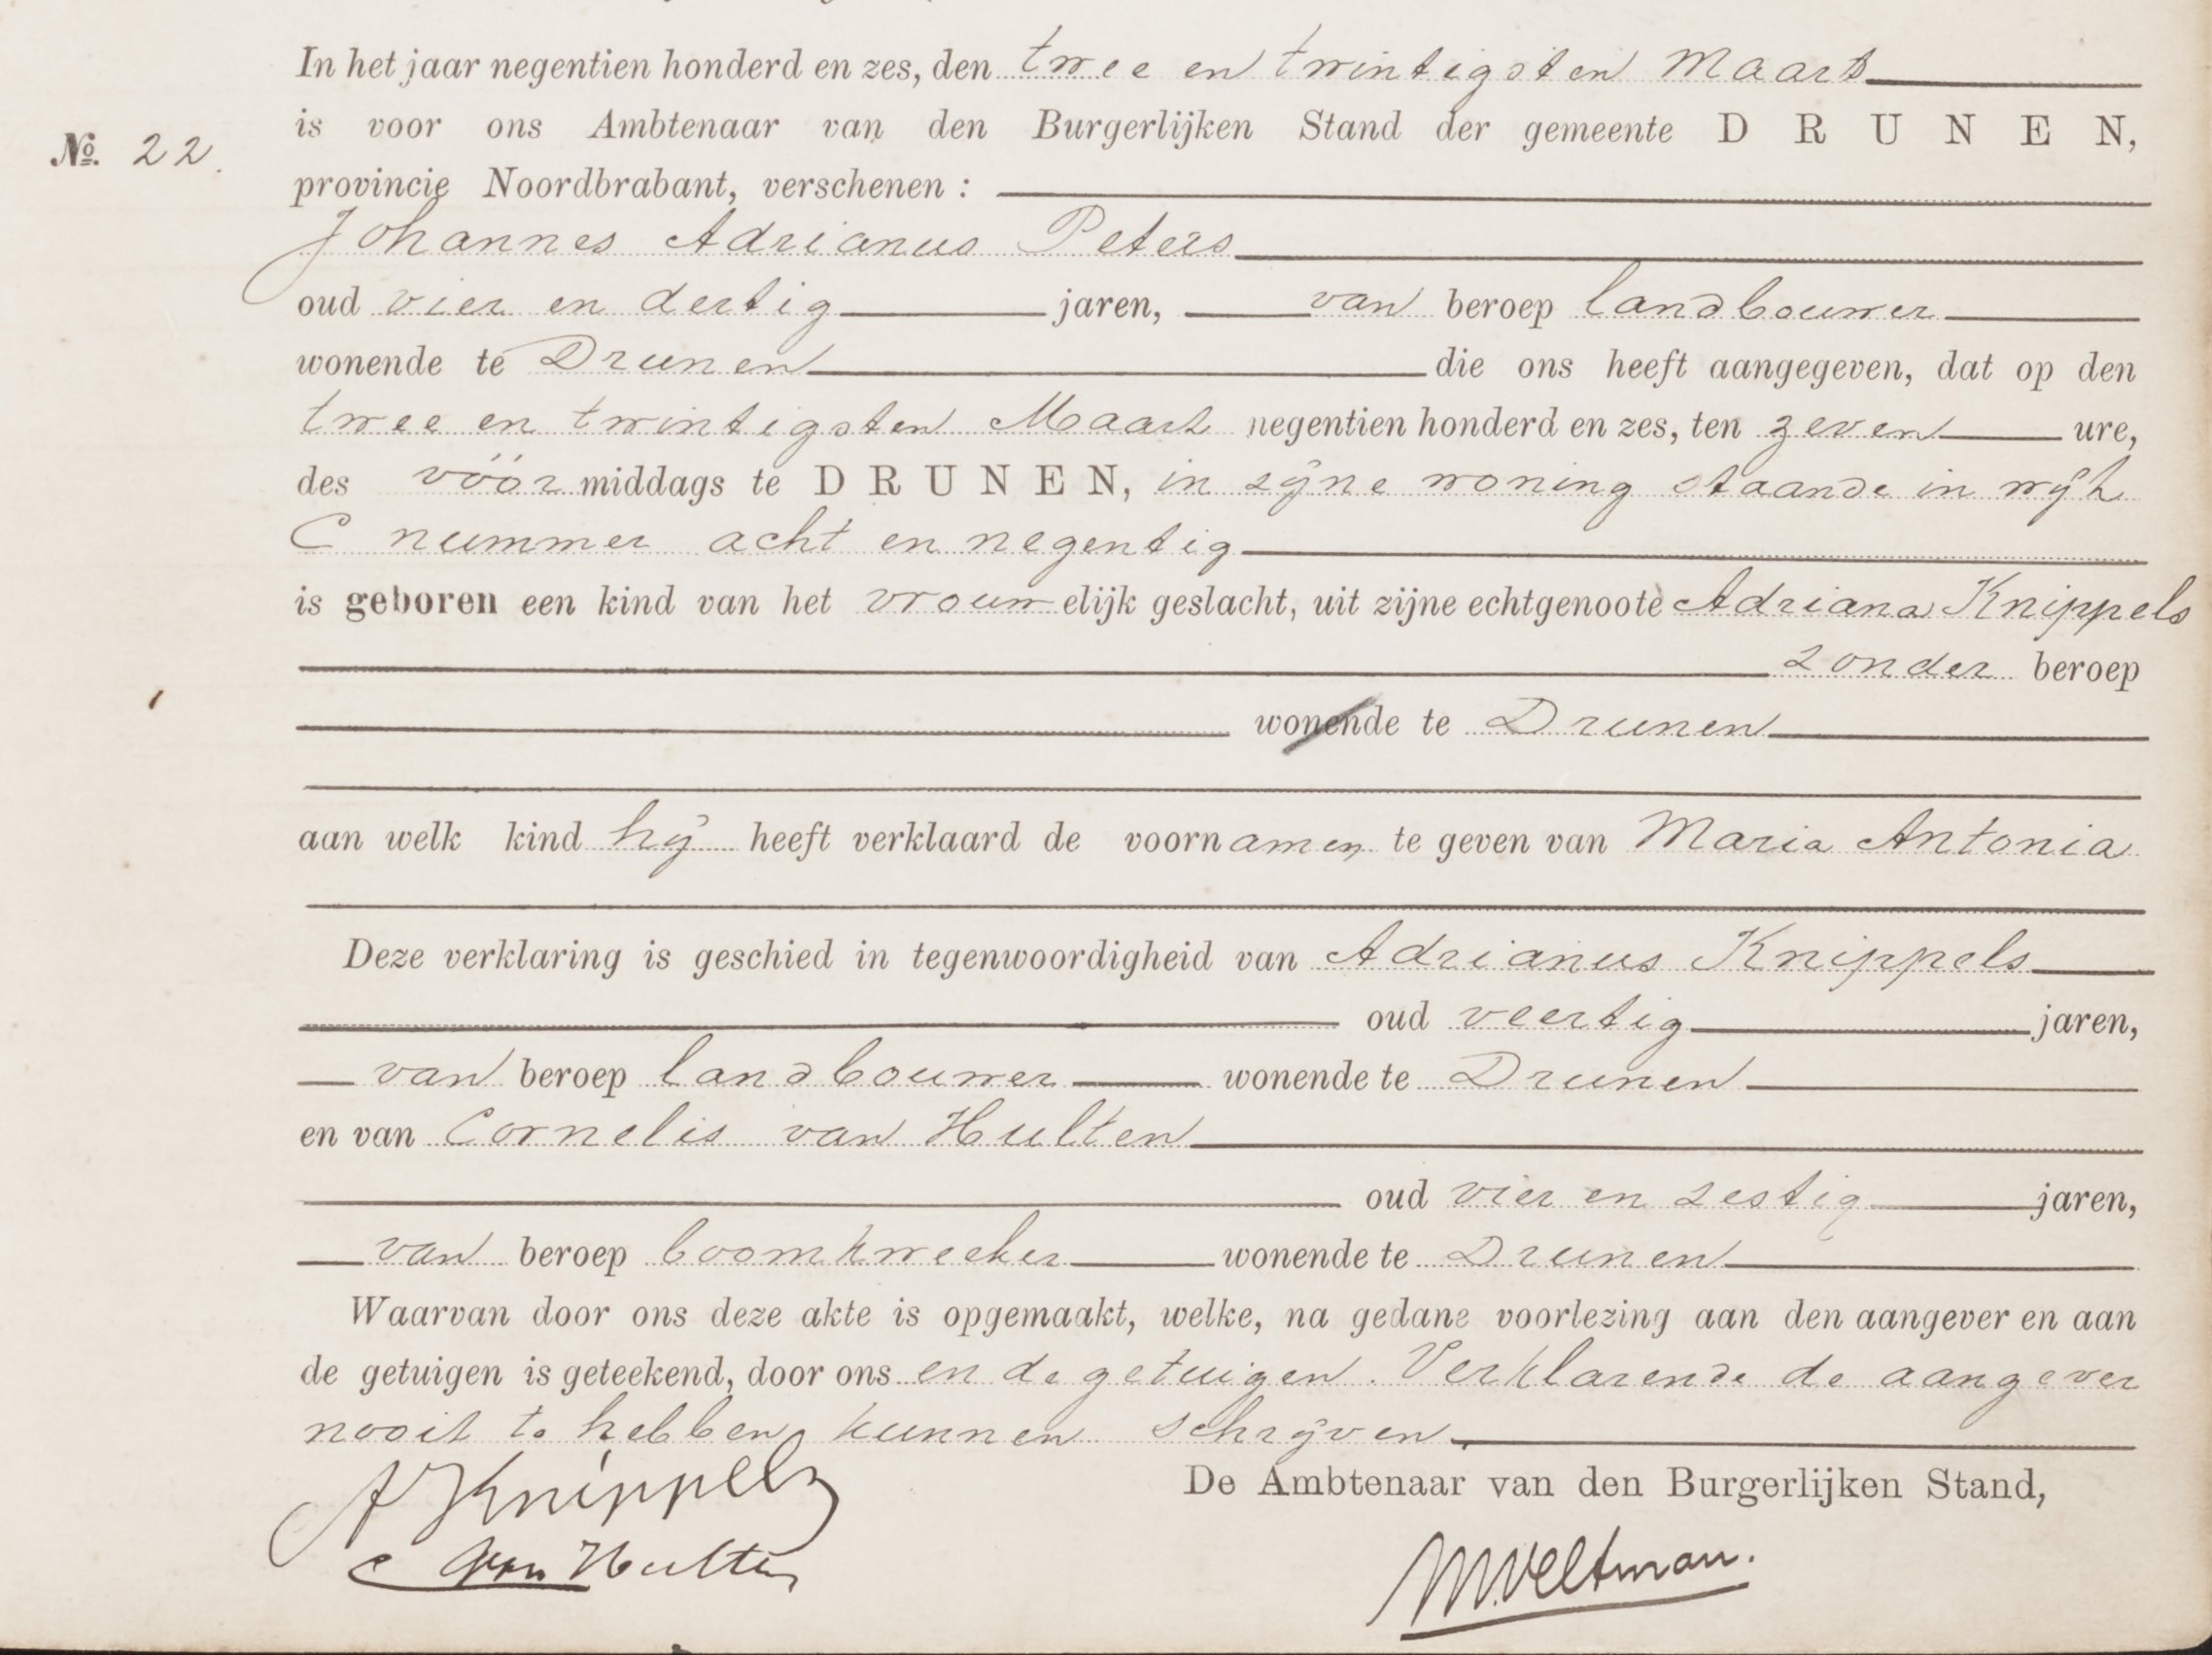 In het jaar negentien honderd en zes, den twee en twintigsten Maart
is voor ons Ambtenaar van den Burgerlijken Stand der gemeente DRUNEN,
No. 22.
provincie Noordbrabant, verschenen :
Johannes Adrianus Peters
oud vier en dertig jaren, van beroep landbouwer
wonende te Drunen die ons heeft aangegeven, dat op den
twee en twintigsten Maart negentien honderd en zes, ten zeven ure,
des vóór middags te DRUNEN, in zijne woning staande in wijk
C nummer acht en negentig
is geboren een kind van het vrouwelijk geslacht, uit zijne echtgenoote Adriana Knippels
zonder beroep
wonende te Drunen
aan welk kind hij heeft verklaard de voornamen te geven van Maria Antonia
Deze verklaring is geschied in tegenwoordigheid van Adrianus Knippels
oud veertig jaren,
van beroep landbouwer wonende te Drunen
en van Cornelis van Hulten
oud vier en zestig jaren,
van beroep boomkweeker wonende te Drunen
Waarvan door ons deze akte is opgemaakt, welke, na gedane voorlezing aan den aangever en aan
de getuigen is geteekend, door ons en de getuigen. Verklarende de aangever
nooit te hebben kunnen schrijven.
A Knippels
De Ambtenaar van den Burgerlijken Stand,
C van Hulten
M.Veltman.